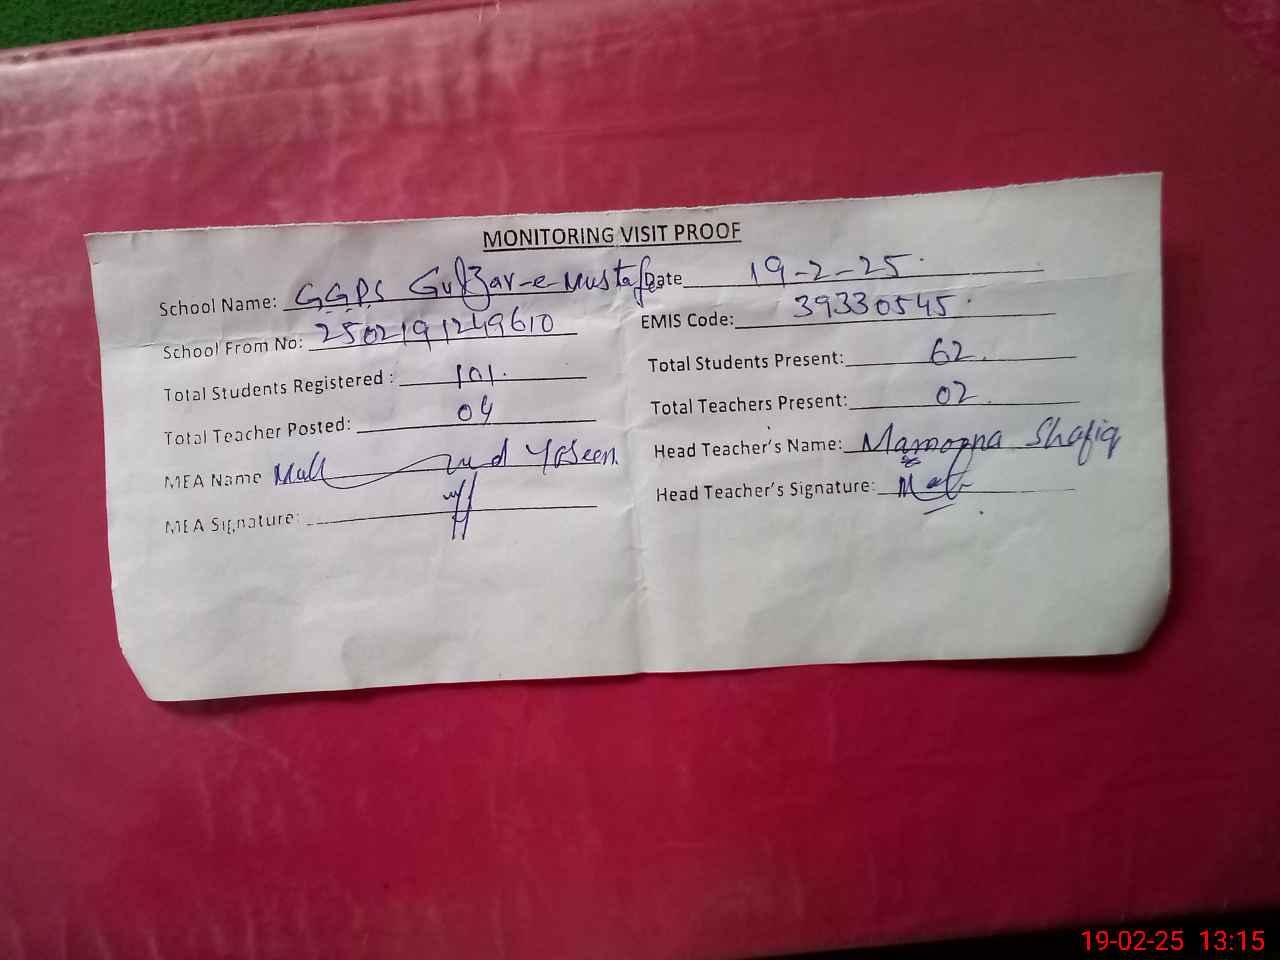 MONITORING VISIT PROOF
School Name: GGPS Gulzar-e-Mustafa Date 19-2-25
School From No: 2502191249610 EMIS Code: 39330545
Total Students Registered : 101 Total Students Present: 62
Total Teacher Posted: 04 Total Teachers Present: 02
MEA Name Yaseen Head Teacher's Name: Mamoona Shafiq
MEA Signature: Head Teacher's Signature:
19-02-25 13:15